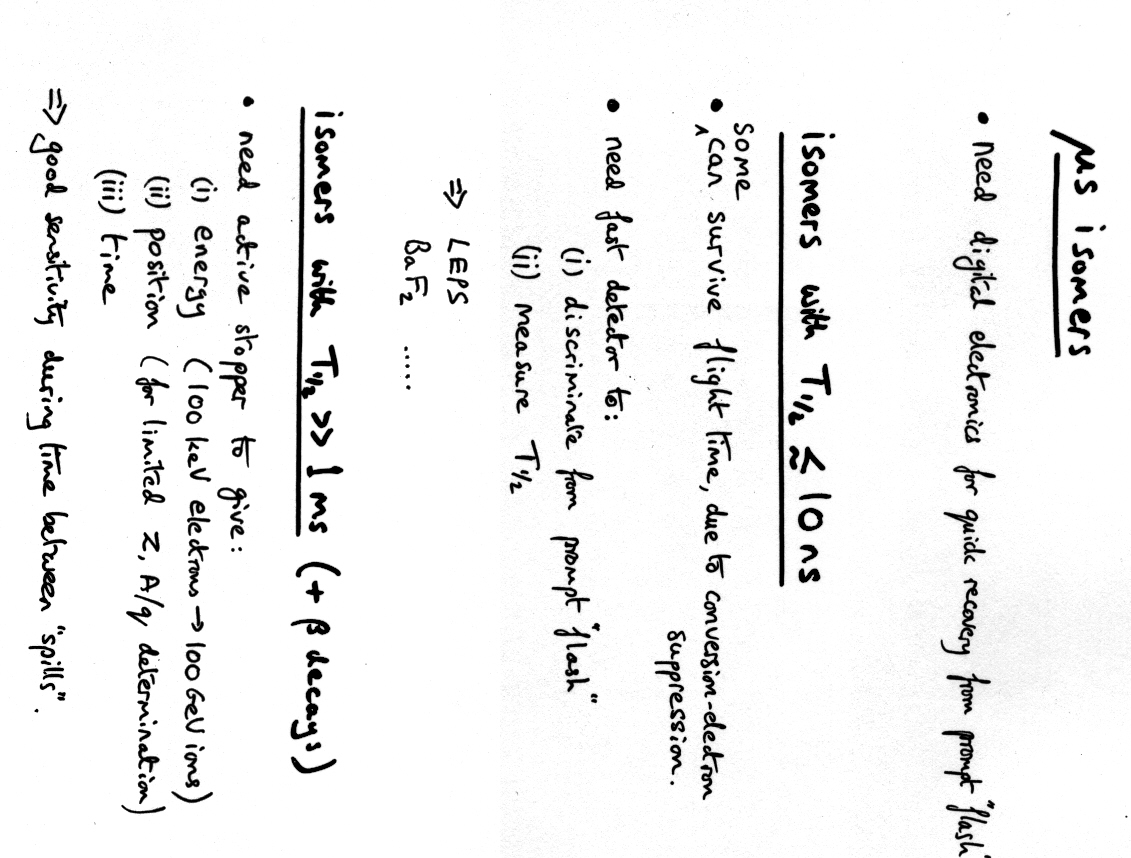 μs isomers
• need digital electronics for quick recovery from prompt "flash"
isomers with T1/2 ≲ 10 ns
• some can survive flight time, due to conversion-electron
suppression.
• need fast detector to:
(i) discriminate from prompt "flash"
(ii) measure T1/2
⇒ LEPS
BaF2 ......
isomers with T1/2 >> 1 ms (+ β decays)
• need active stopper to give:
(i) energy (100 keV electrons → 100 GeV ions)
(ii) position (for limited Z, A/q determination)
(iii) time
⇒ good sensitivity during time between "spills".